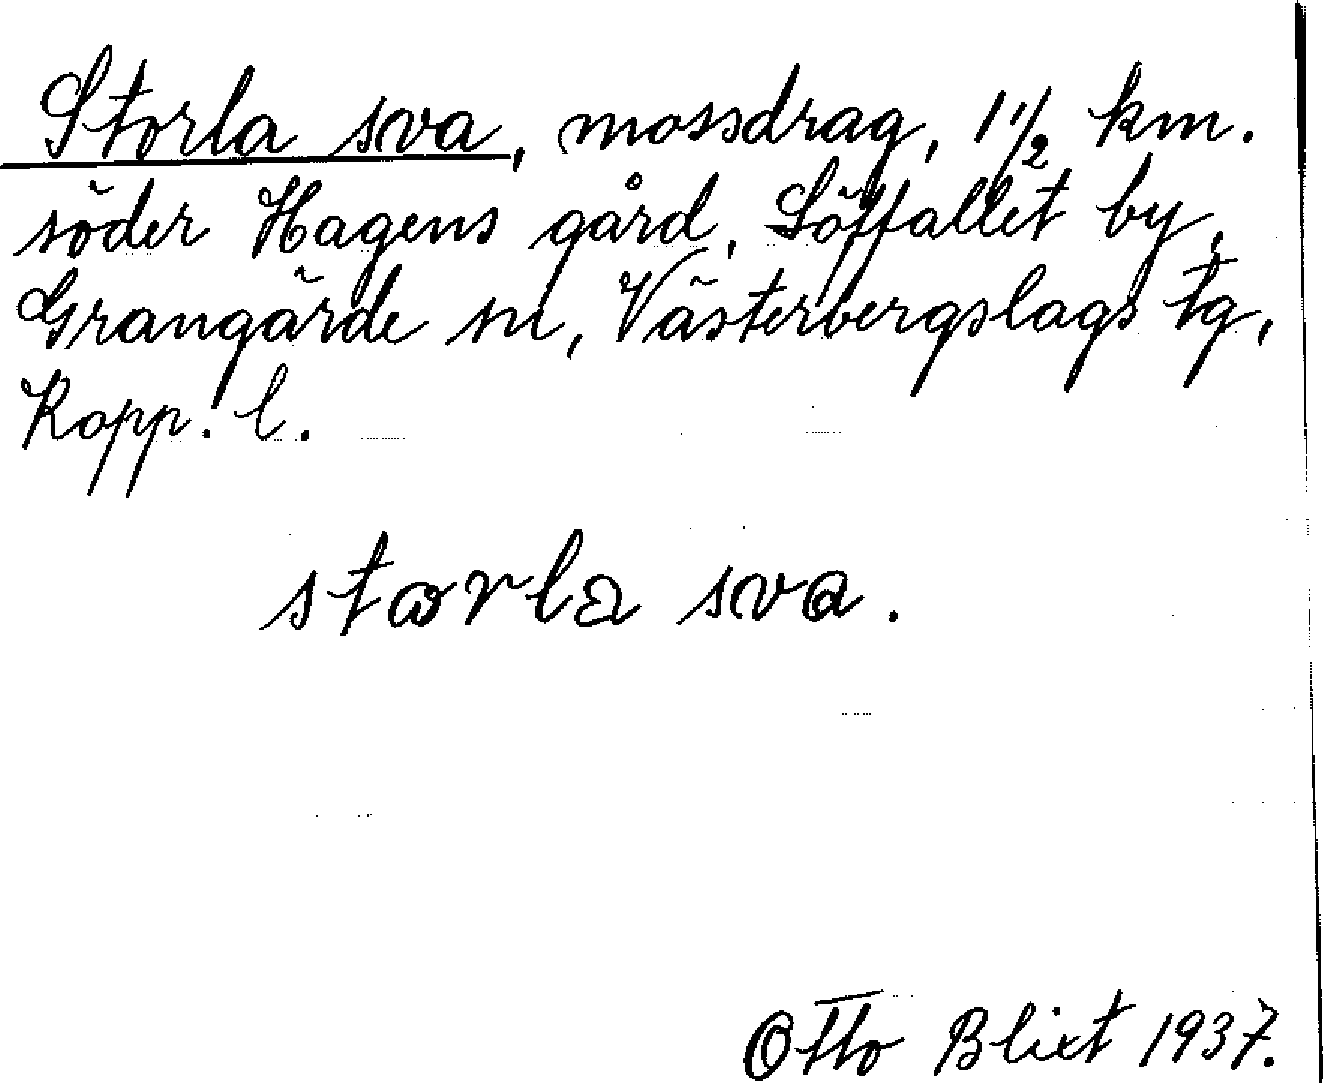 Storla sva, mossdrag, 1 1/2 km.
söder Hagens gård, Löffallet by,
Grangärde sn, Västerbergslags tg,
Kopp. l.
starla sva.
Otto Blixt 1937.